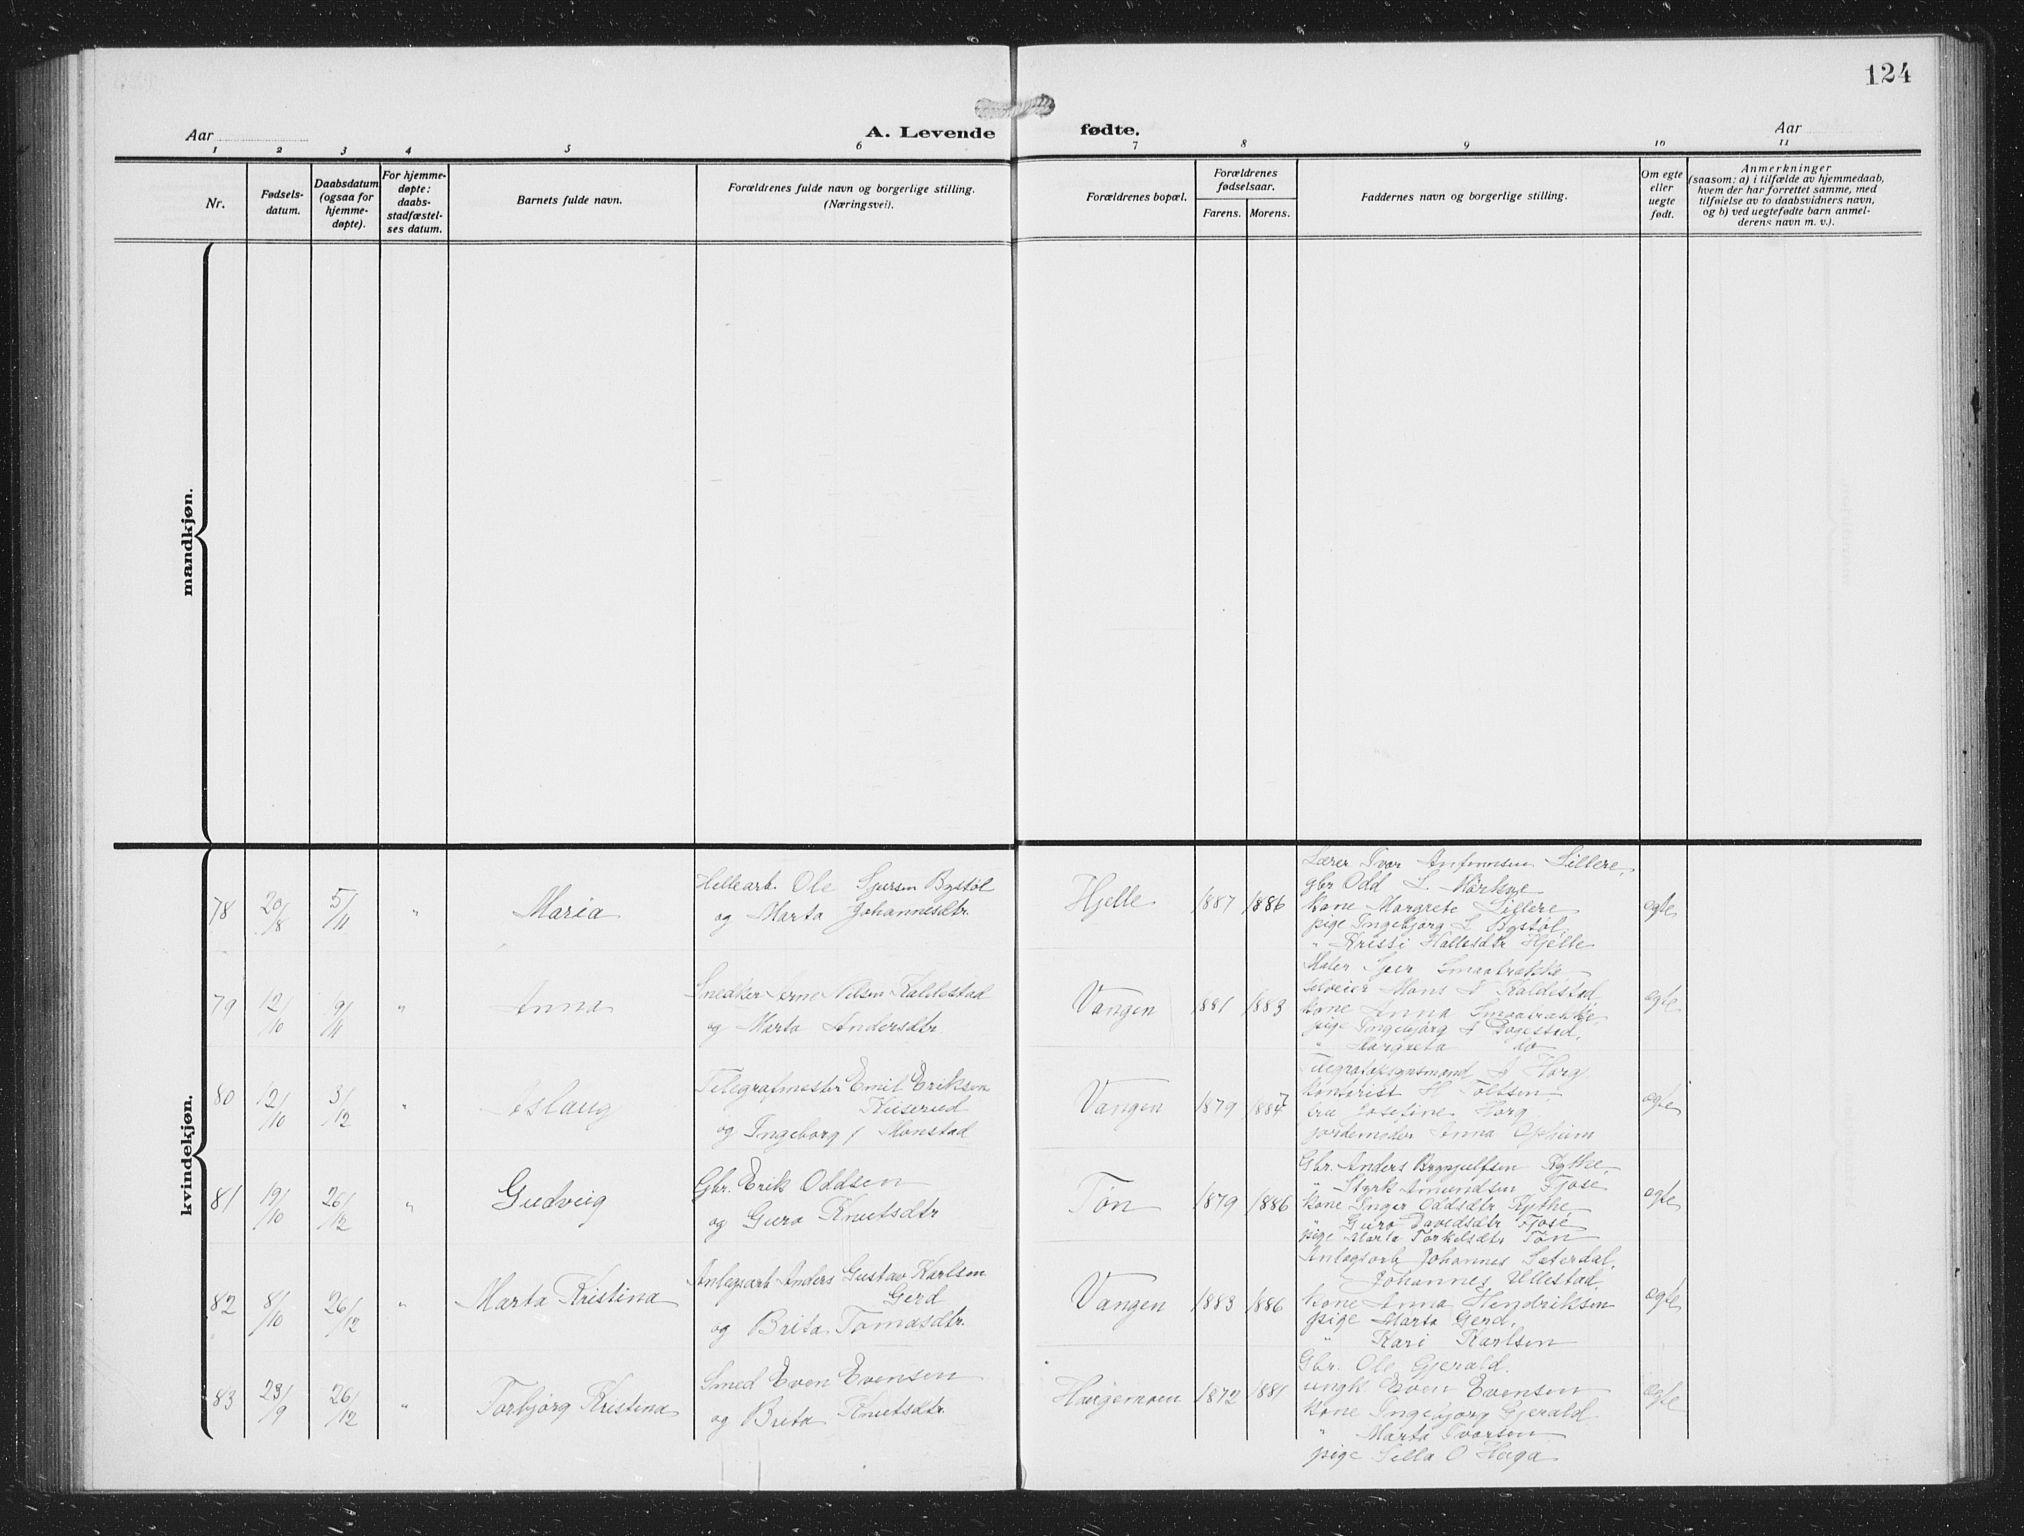 124
Aar
A. Levende
fødte.
Aar
1 2 3 4 5 6 7 8 9 10 11
Nr.
Fødsels-
datum.
Daabsdatum
(ogsaa for
hjemme-
døpte).
For hjemme-
døpte:
daabs-
stadfæstel-
ses datum.
Barnets fulde navn.
Forældrenes fulde navn og borgerlige stilling.
(Næringsvei).
Forældrenes bopæl.
Forældrenes
fødselsaar.
Farens. Morens.
Faddernes navn og borgerlige stilling.
Om egte
eller
uegte
født.
Anmerkninger
(saasom: a) i tilfælde av hjemmedaab,
hvem der har forrettet samme, med
tilføielse av to daabsvidners navn,
og b) ved uegtefødte barn anmel-
derens navn m. v.).
mandkjøn.
kvindekjøn.
78 20/8 5/11 " Maria
Hellearb. Ole Sjursen Bystøl
og Marta Johannesdtr.
Hjelle 1887 1886
Lærer Ivar Antonnesen Lillere,
gbr Odd L. Mørkve
kone Margrete Lillere
pige Ingebjorg L Bystøl,
" Krissi Hallesdtr Hjelle
egte
79 12/10 9/11 " Anna
Snedker Arne Nilsen Kaldestad
og Marta Andersdtr
Vangen 1881 1883
Maler Sjur Smaabrække
selveier Mons N Kaldestad
kone Anna Smaabrække,
pige Ingebjørg A Dagestad,
" Margreta do
egte
80 12/10 3/12 " Aslaug
Telegrafmester Emil Eriksen
Kiserud
og Ingeborg f Monstad
Vangen 1879 1887
Horg
kontorist H Toltsen
fru Josefine Horg
jordemoder Anna Opheim
egte
81 19/10 26/12 " Gudveig
Gbr. Erik Oddsen
og Guro Knutsdtr
Tøn 1879 1886
Gbr. Anders Brynjulfsen Kythe,
" Styrk Amundsen Fjose
kone Inger Oddsdtr Kythe
" Guro Davidsdtr Fjose
pige Marta Torkelsdtr Tøn
egte
82 8/10 26/12 " Marta Kristina
Anlegsarb Anders Gustav Karlsen
Gerd
og Brita Tomasdtr.
Vangen 1883 1886
Anlegsarb Johannes Seterdal,
Johannes Ullestad
kone Anna Hendriksen
pige Marta Gerd,
" Kari Karlsen
egte
83 23/9 26/12 " Torbjørg Kristina
Smed Even Evensen
og Brita Knutsdtr.
Haugemoen 1872 1881
Gbr. Ole Gjerald.
ungk Even Evensen
kone Ingebjorg Gjerald
" Marta Ivarsen
pige Sella O Haga
egte